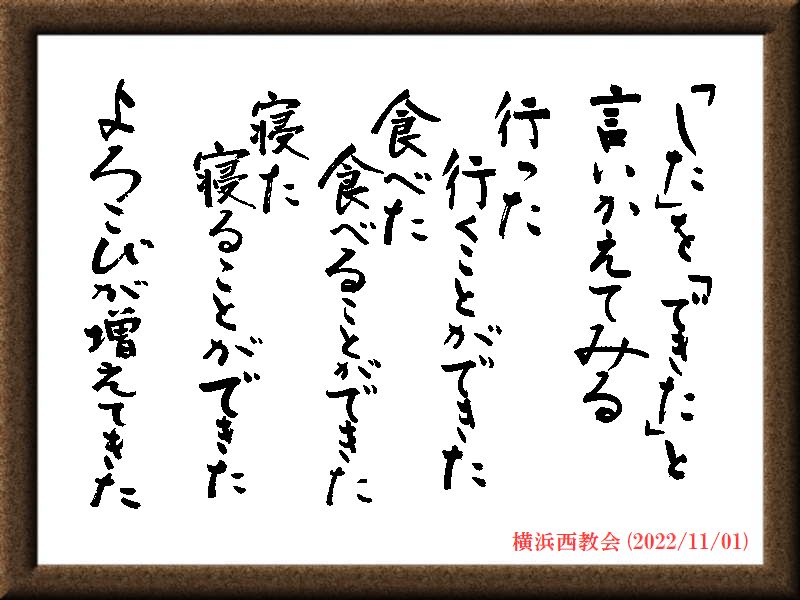 「した」を「できた」と
言いかえてみる
行った
行くことができた
食べた
食べることができた
寝た
寝ることができた
よろこびが増えてきた
横浜西教会 (2022/11/01)